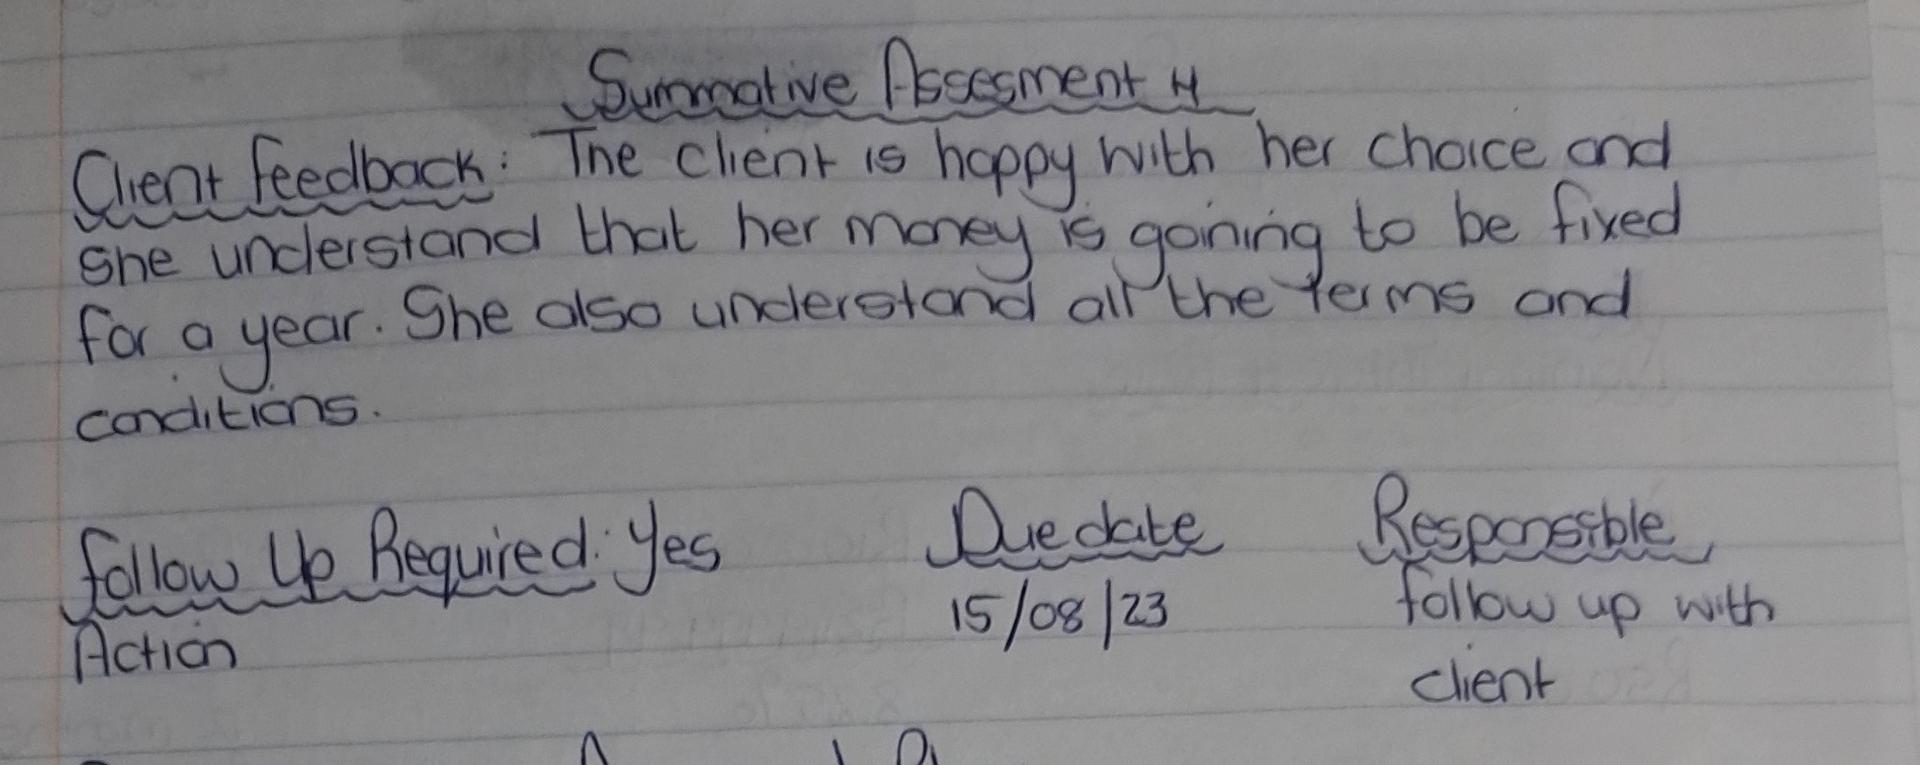 Summative Assesment H
Client feedback: The client is happy with her choice and
she understand that her money is goining to be fixed
for a year. She also understand all the terms and
conditions.
follow Up Required: Yes Due date Responsible
Action 15/08/23 follow up with
client